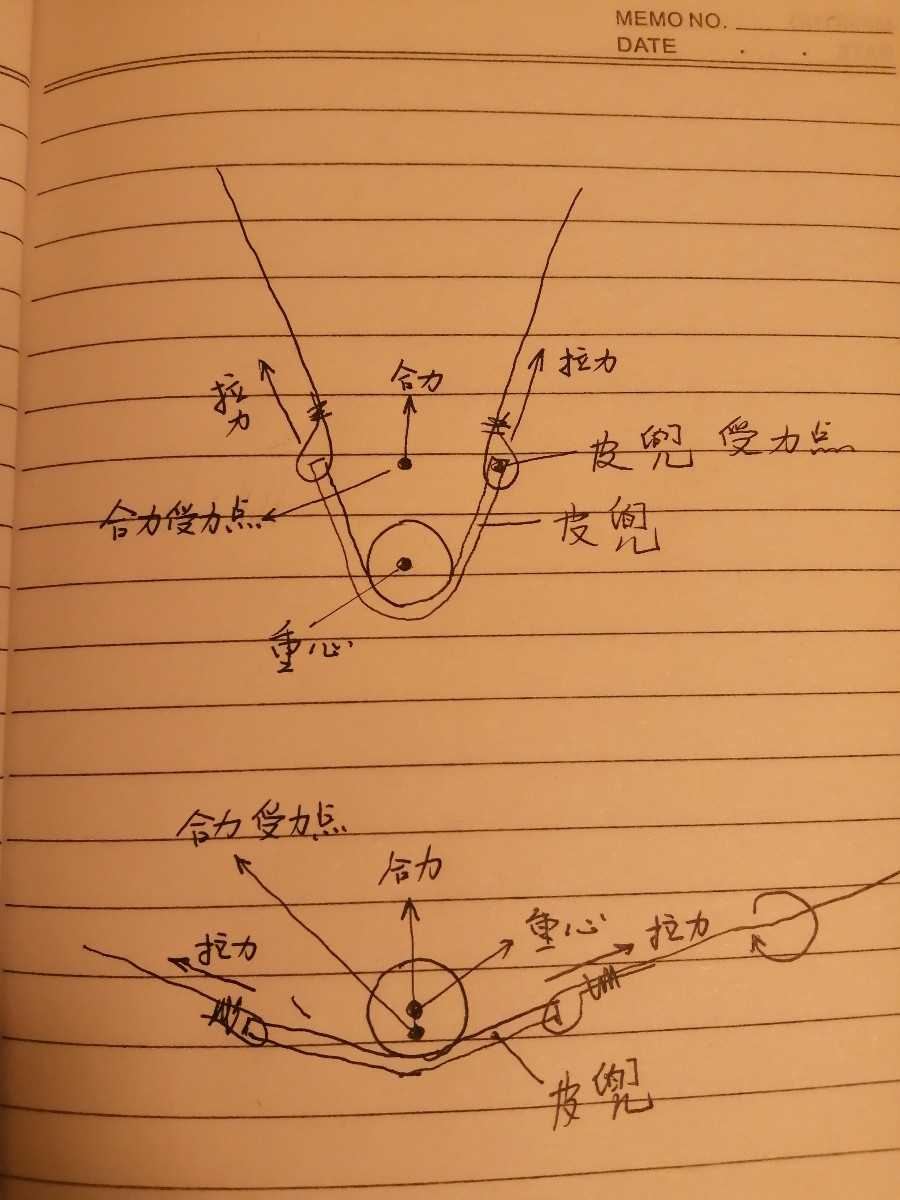 MEMO NO.
DATE . .
合力
拉力
拉力
皮兜 受力点
合力受力点
皮兜
重心
合力受力点
合力
重心
拉力
拉力
皮兜